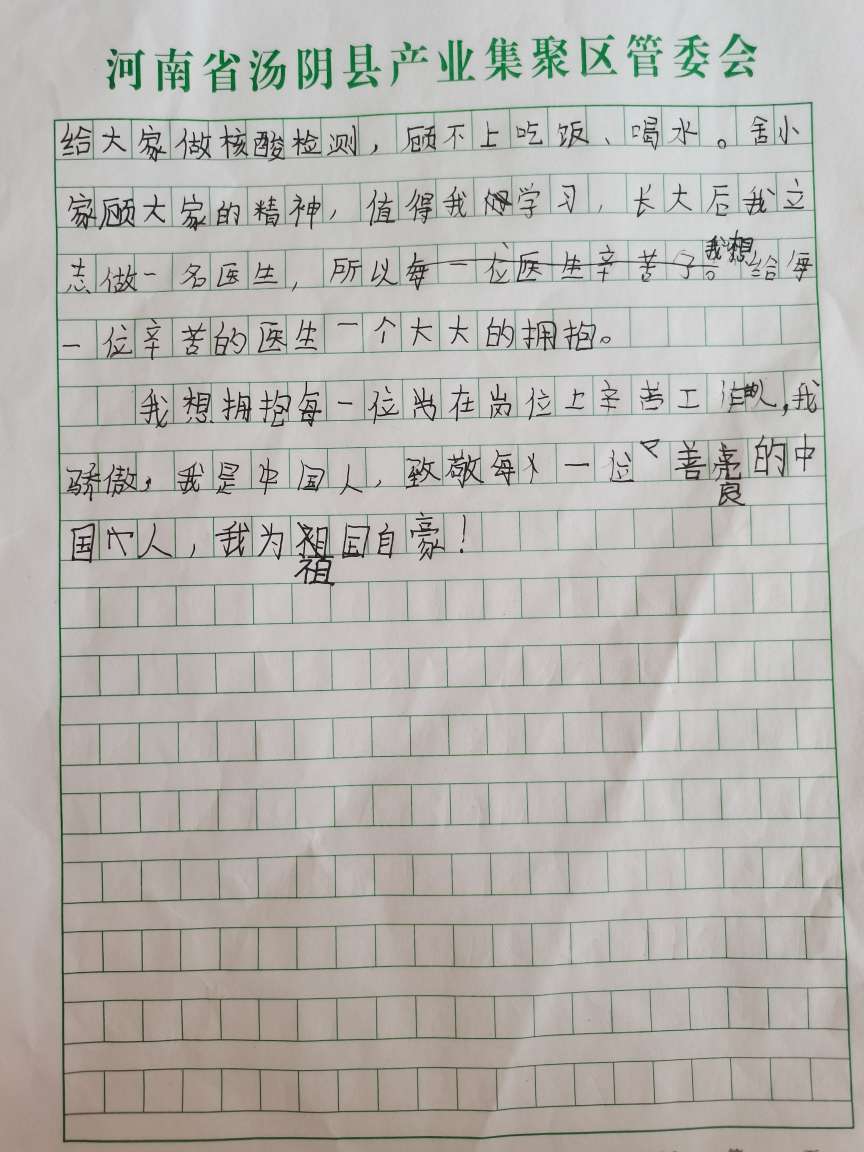 河南省汤阴县产业集聚区管委会
给大家做核酸检测，顾不上吃饭、喝水。舍小
家顾大家的精神，值得我学习，长大后我立
志做一名医生，所以我想给每
一位辛苦的医生一个大大的拥抱。
我想拥抱每一位尚在岗位上辛苦工作人，我
骄傲，我是中国人，致敬每一位善良的中
国人，我为祖国自豪！